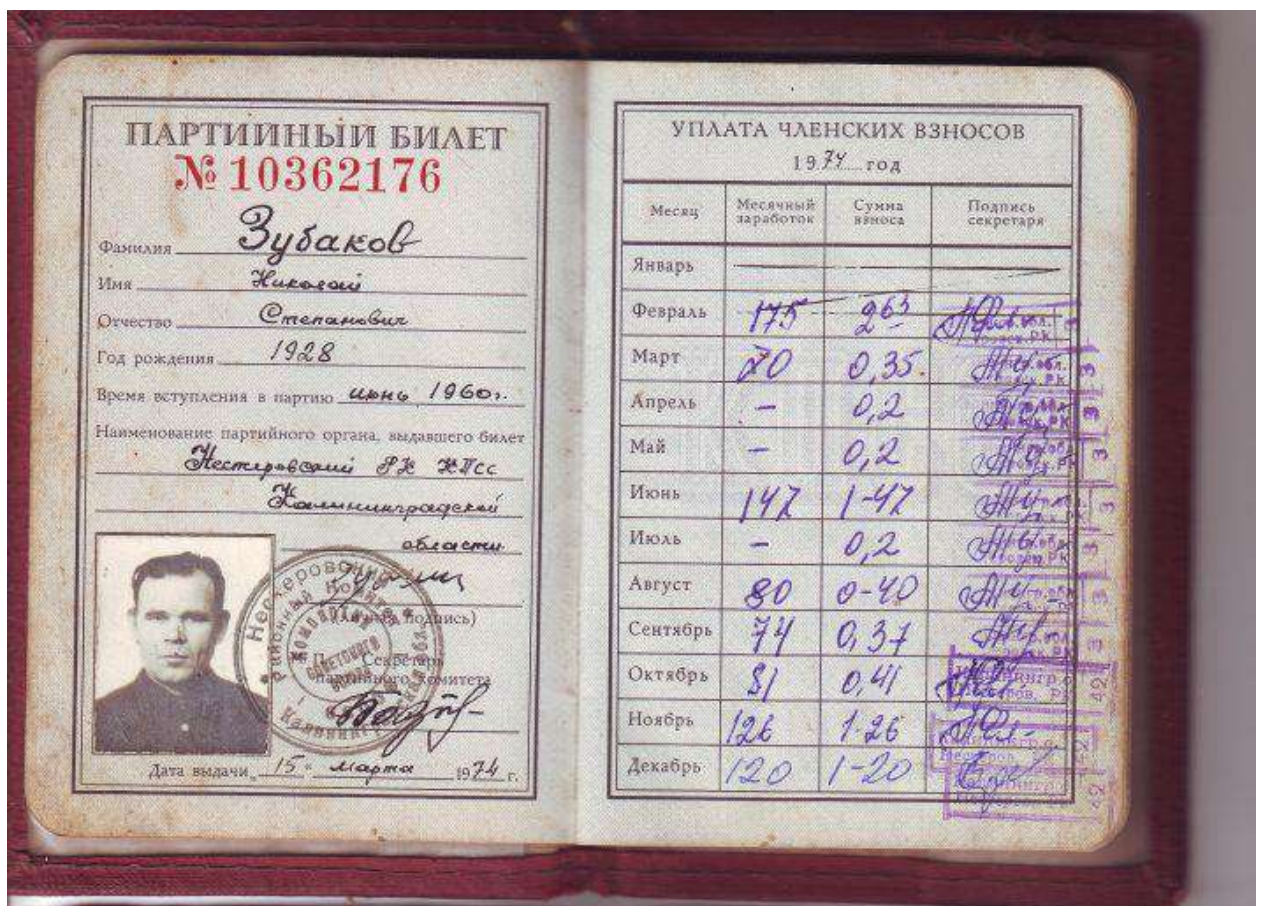 ПАРТИЙНЫЙ БИЛЕТ
№ 10362176
Фамилия Зубаков
Имя Николай
Отчество Степанович
Год рождения 1928
Время вступления в партию июнь 1960г.
Наименование партийного органа, выдавшего билет
Нестеровский РК КПСС
Калининградской
области
(Личная подпись)
Секретарь
партийного комитета
Дата выдачи „15" марта 1974 г.
УПЛАТА ЧЛЕНСКИХ ВЗНОСОВ
1974 год
Месяц Месячный заработок Сумма взноса Подпись секретаря
Январь
Февраль 175 2 63
Март 70 0,35
Апрель - 0,2
Май - 0,2
Июнь 147 1-47
Июль - 0,2
Август 80 0-40
Сентябрь 74 0,37
Октябрь 81 0,41
Ноябрь 126 1-26
Декабрь 120 1-20